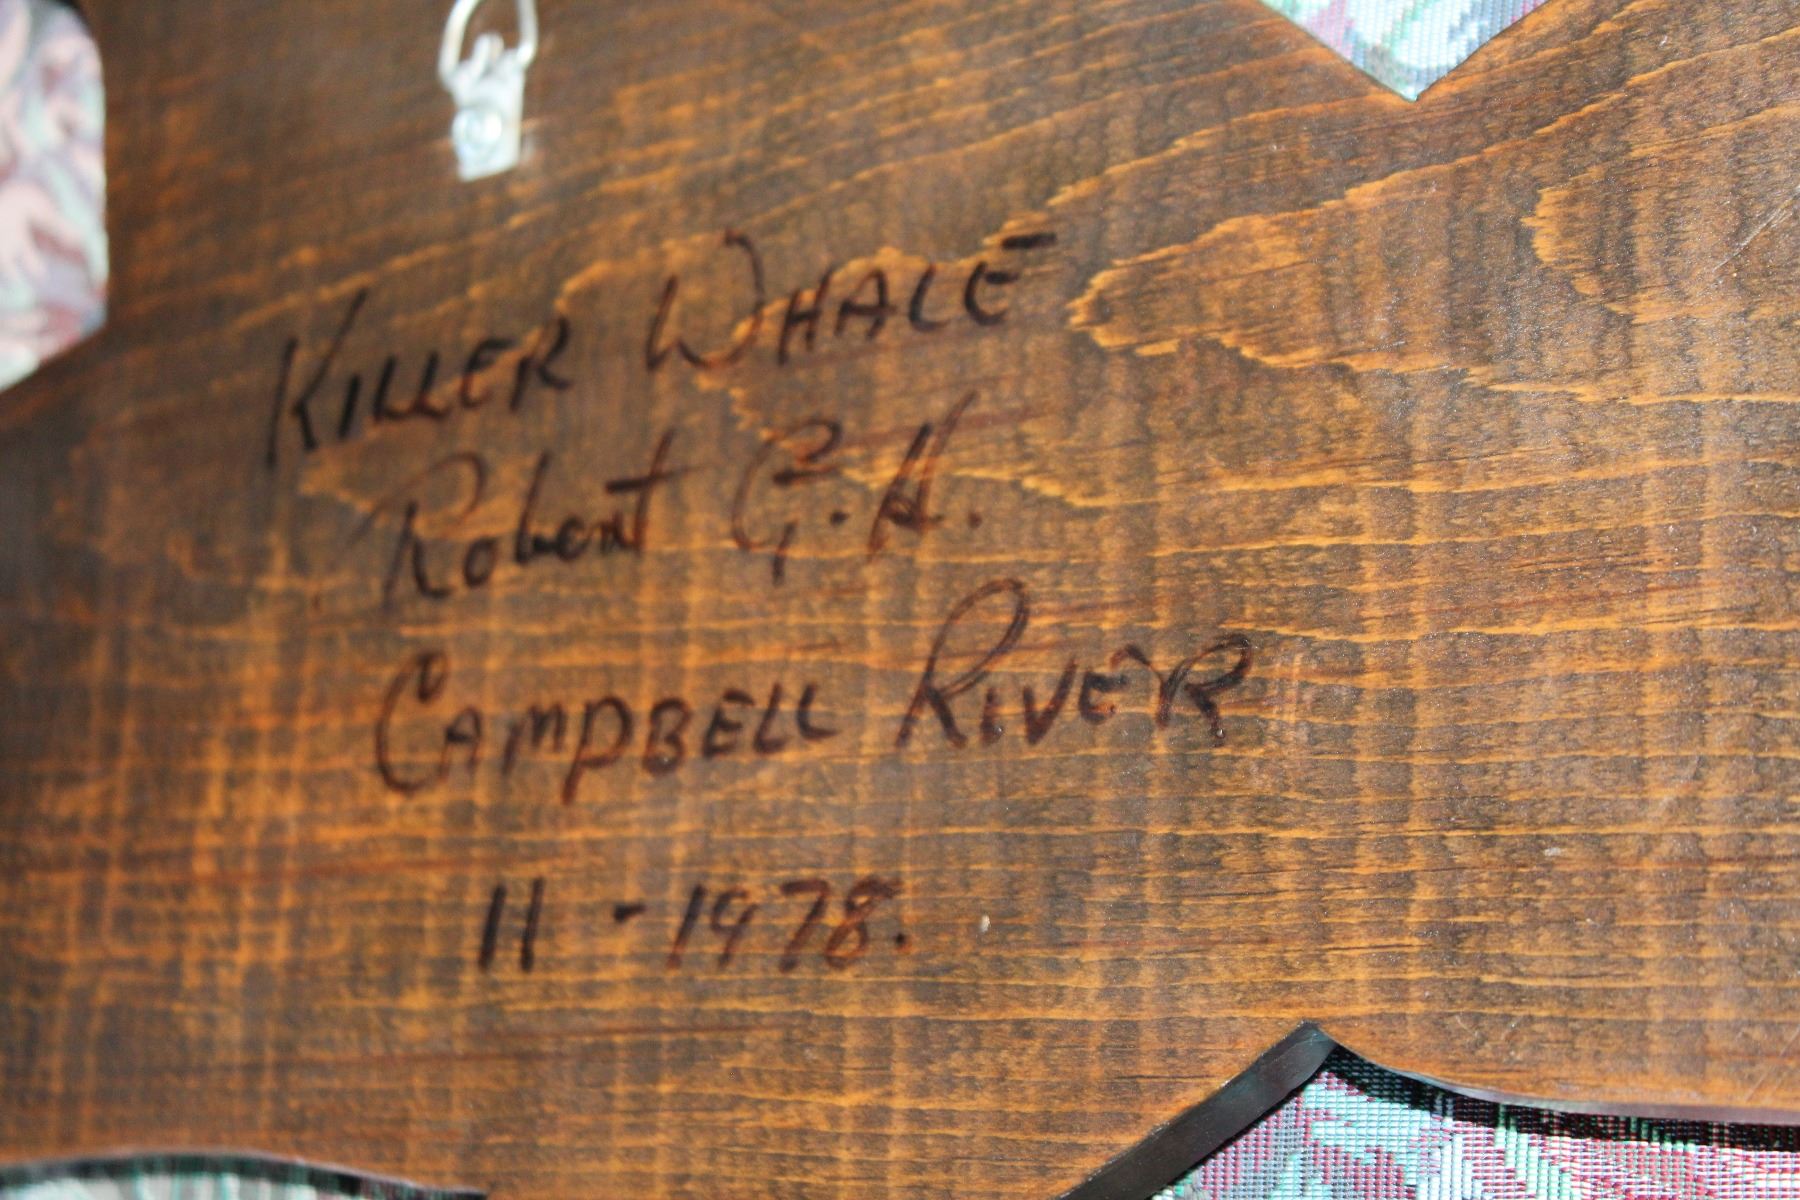 KILLER WHALE
Robert G.H.
CAMPBELL RIVER
11 - 1978.